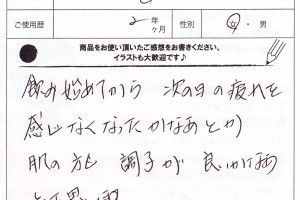 ご使用歴 2年 ヶ月 性別 女・男
商品をお使い頂いたご感想をお書きください。
イラストも大歓迎です♪
飲み始めてから 次の日の疲れを
感じなくなったかなあとか
肌の方も 調子が 良いかなあ